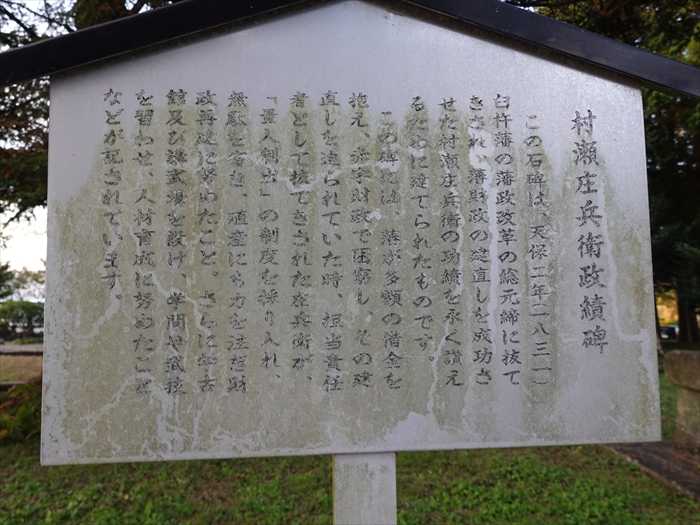 村瀬庄兵衛政績碑
この石碑は、天保二年（一八三一）
臼杵藩の藩政改革の総元締に抜て
きされ、藩財政の建直しを成功さ
せた村瀬庄兵衛の功績を永く讃え
るために建てられたものです。
この碑には、藩が多額の借金を
抱え、赤字財政で困窮し、その建
直しを迫られていた時、担当責任
者として抜てきされた庄兵衛が、
「量入制出」の制度を採り入れ、
無駄を省き、殖産にも力を注ぎ財
政再建に努めたこと。さらに学古
館及び講武場を設け、学問や武技
を習わせ、人材育成に努めたこと
などが記されています。